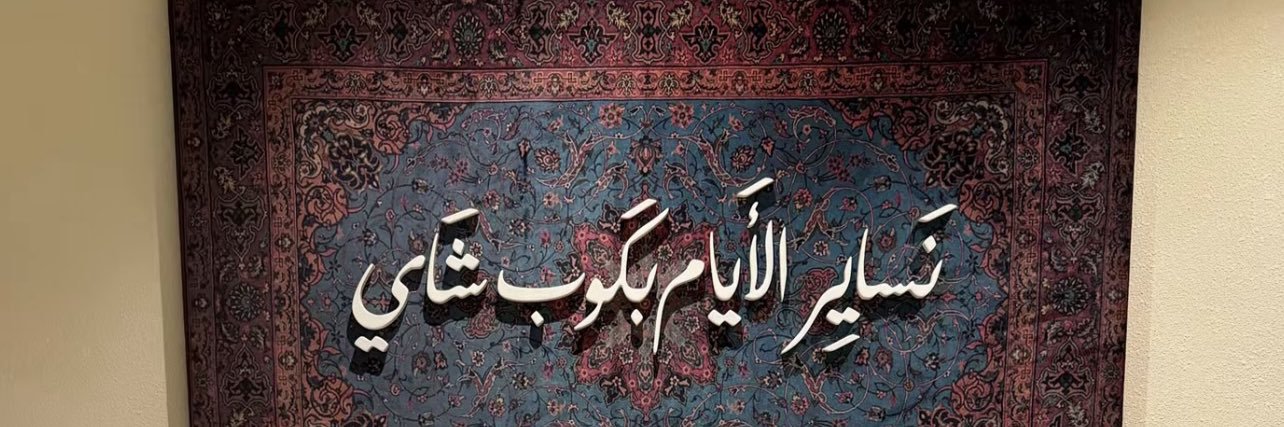 نَسايِرِ الأَيام بَكَوب شَاي